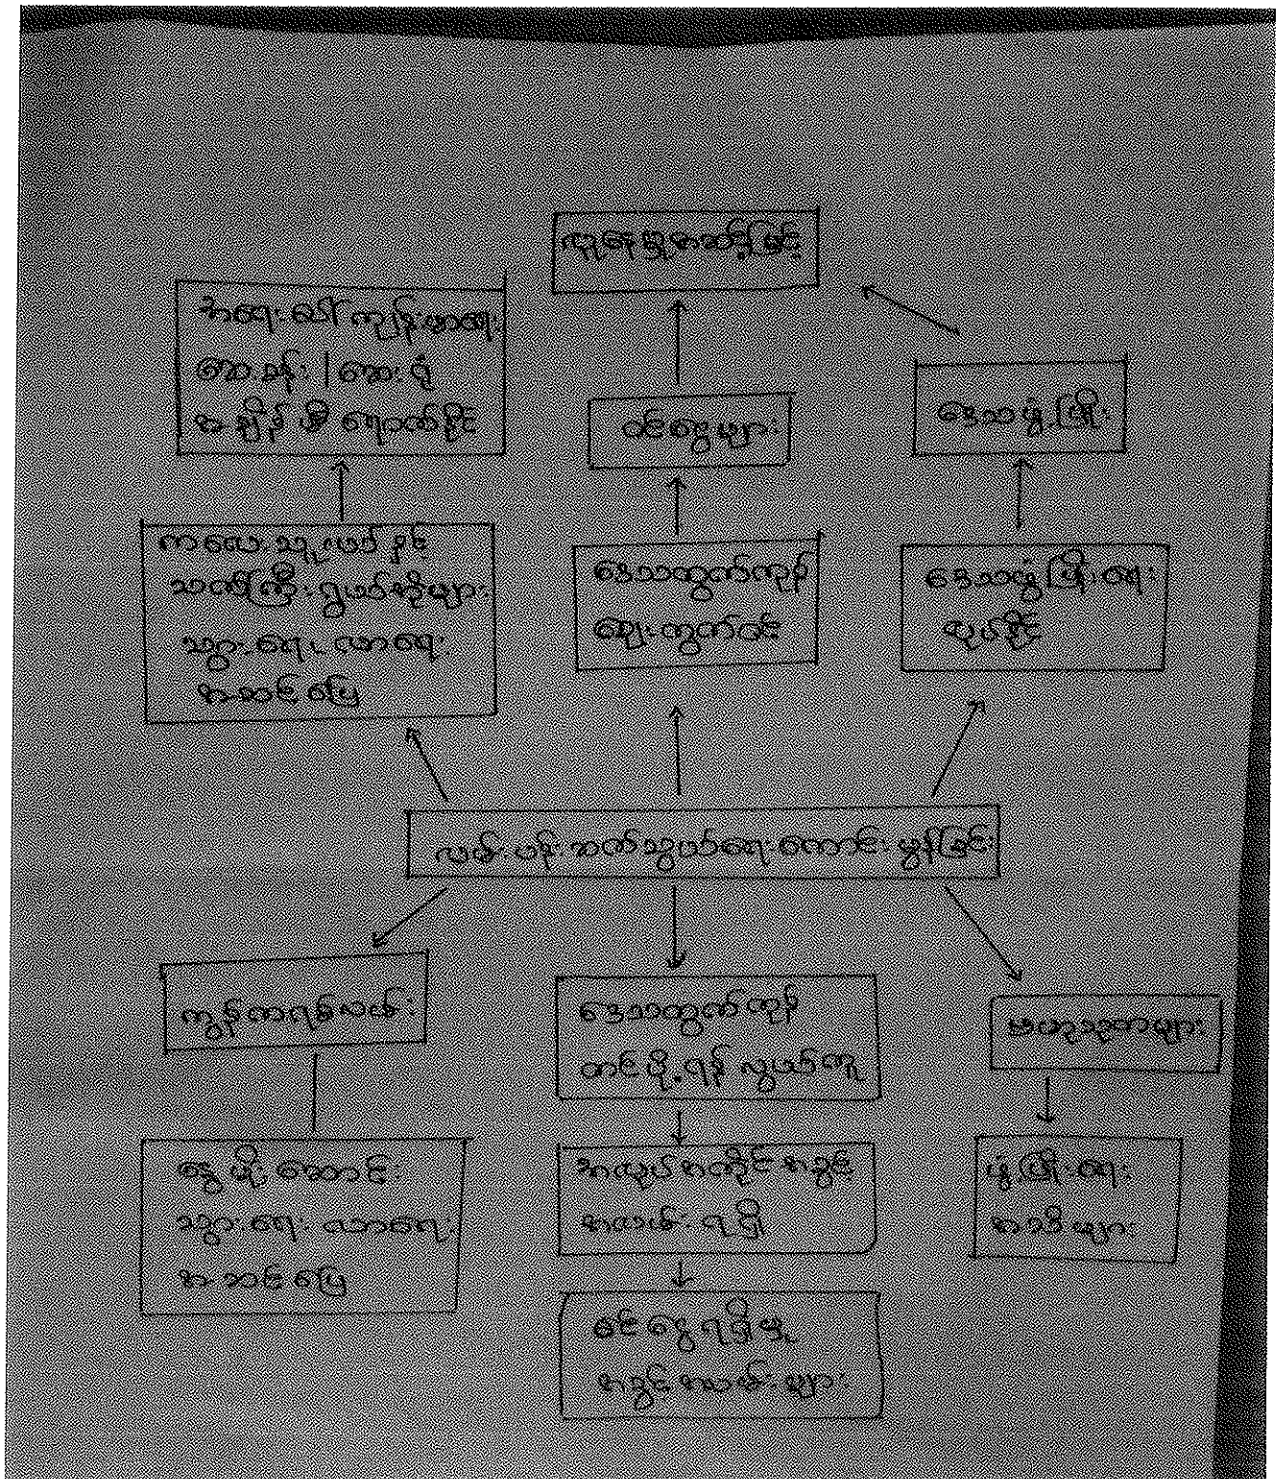 လူနေမှုအဆင့်မြင့်
အရေးပေါ်ကျန်းမာရေး
ဆေးခန်း / ဆေးရုံ
အချိန်မီရောက်နိုင်
ဝင်ငွေများ
ဒေသဖွံ့ဖြိုး
ကလေးသူငယ်နှင့်
သက်ကြီးရွယ်အိုများ
သွားရေးလာရေး
အဆင်ပြေ
ဒေသထွက်ကုန်
ဈေးကွက်ဝင်
ဒေသဖွံ့ဖြိုးရေး
လုပ်နိုင်
လမ်းပန်းဆက်သွယ်ရေးကောင်းမွန်ခြင်း
ကွန်ကရစ်လမ်း
ဒေသထွက်ကုန်
တင်ပို့ရန်လွယ်ကူ
ဗဟုသုတများ
နွေမိုးဆောင်း
သွားရေးလာရေး
အဆင်ပြေ
အလုပ်အကိုင်အခွင့်
အလမ်းရရှိ
ဖွံ့ဖြိုးရေး
အသိများ
ဝင်ငွေရရှိမှု
အခွင့်အလမ်းများ